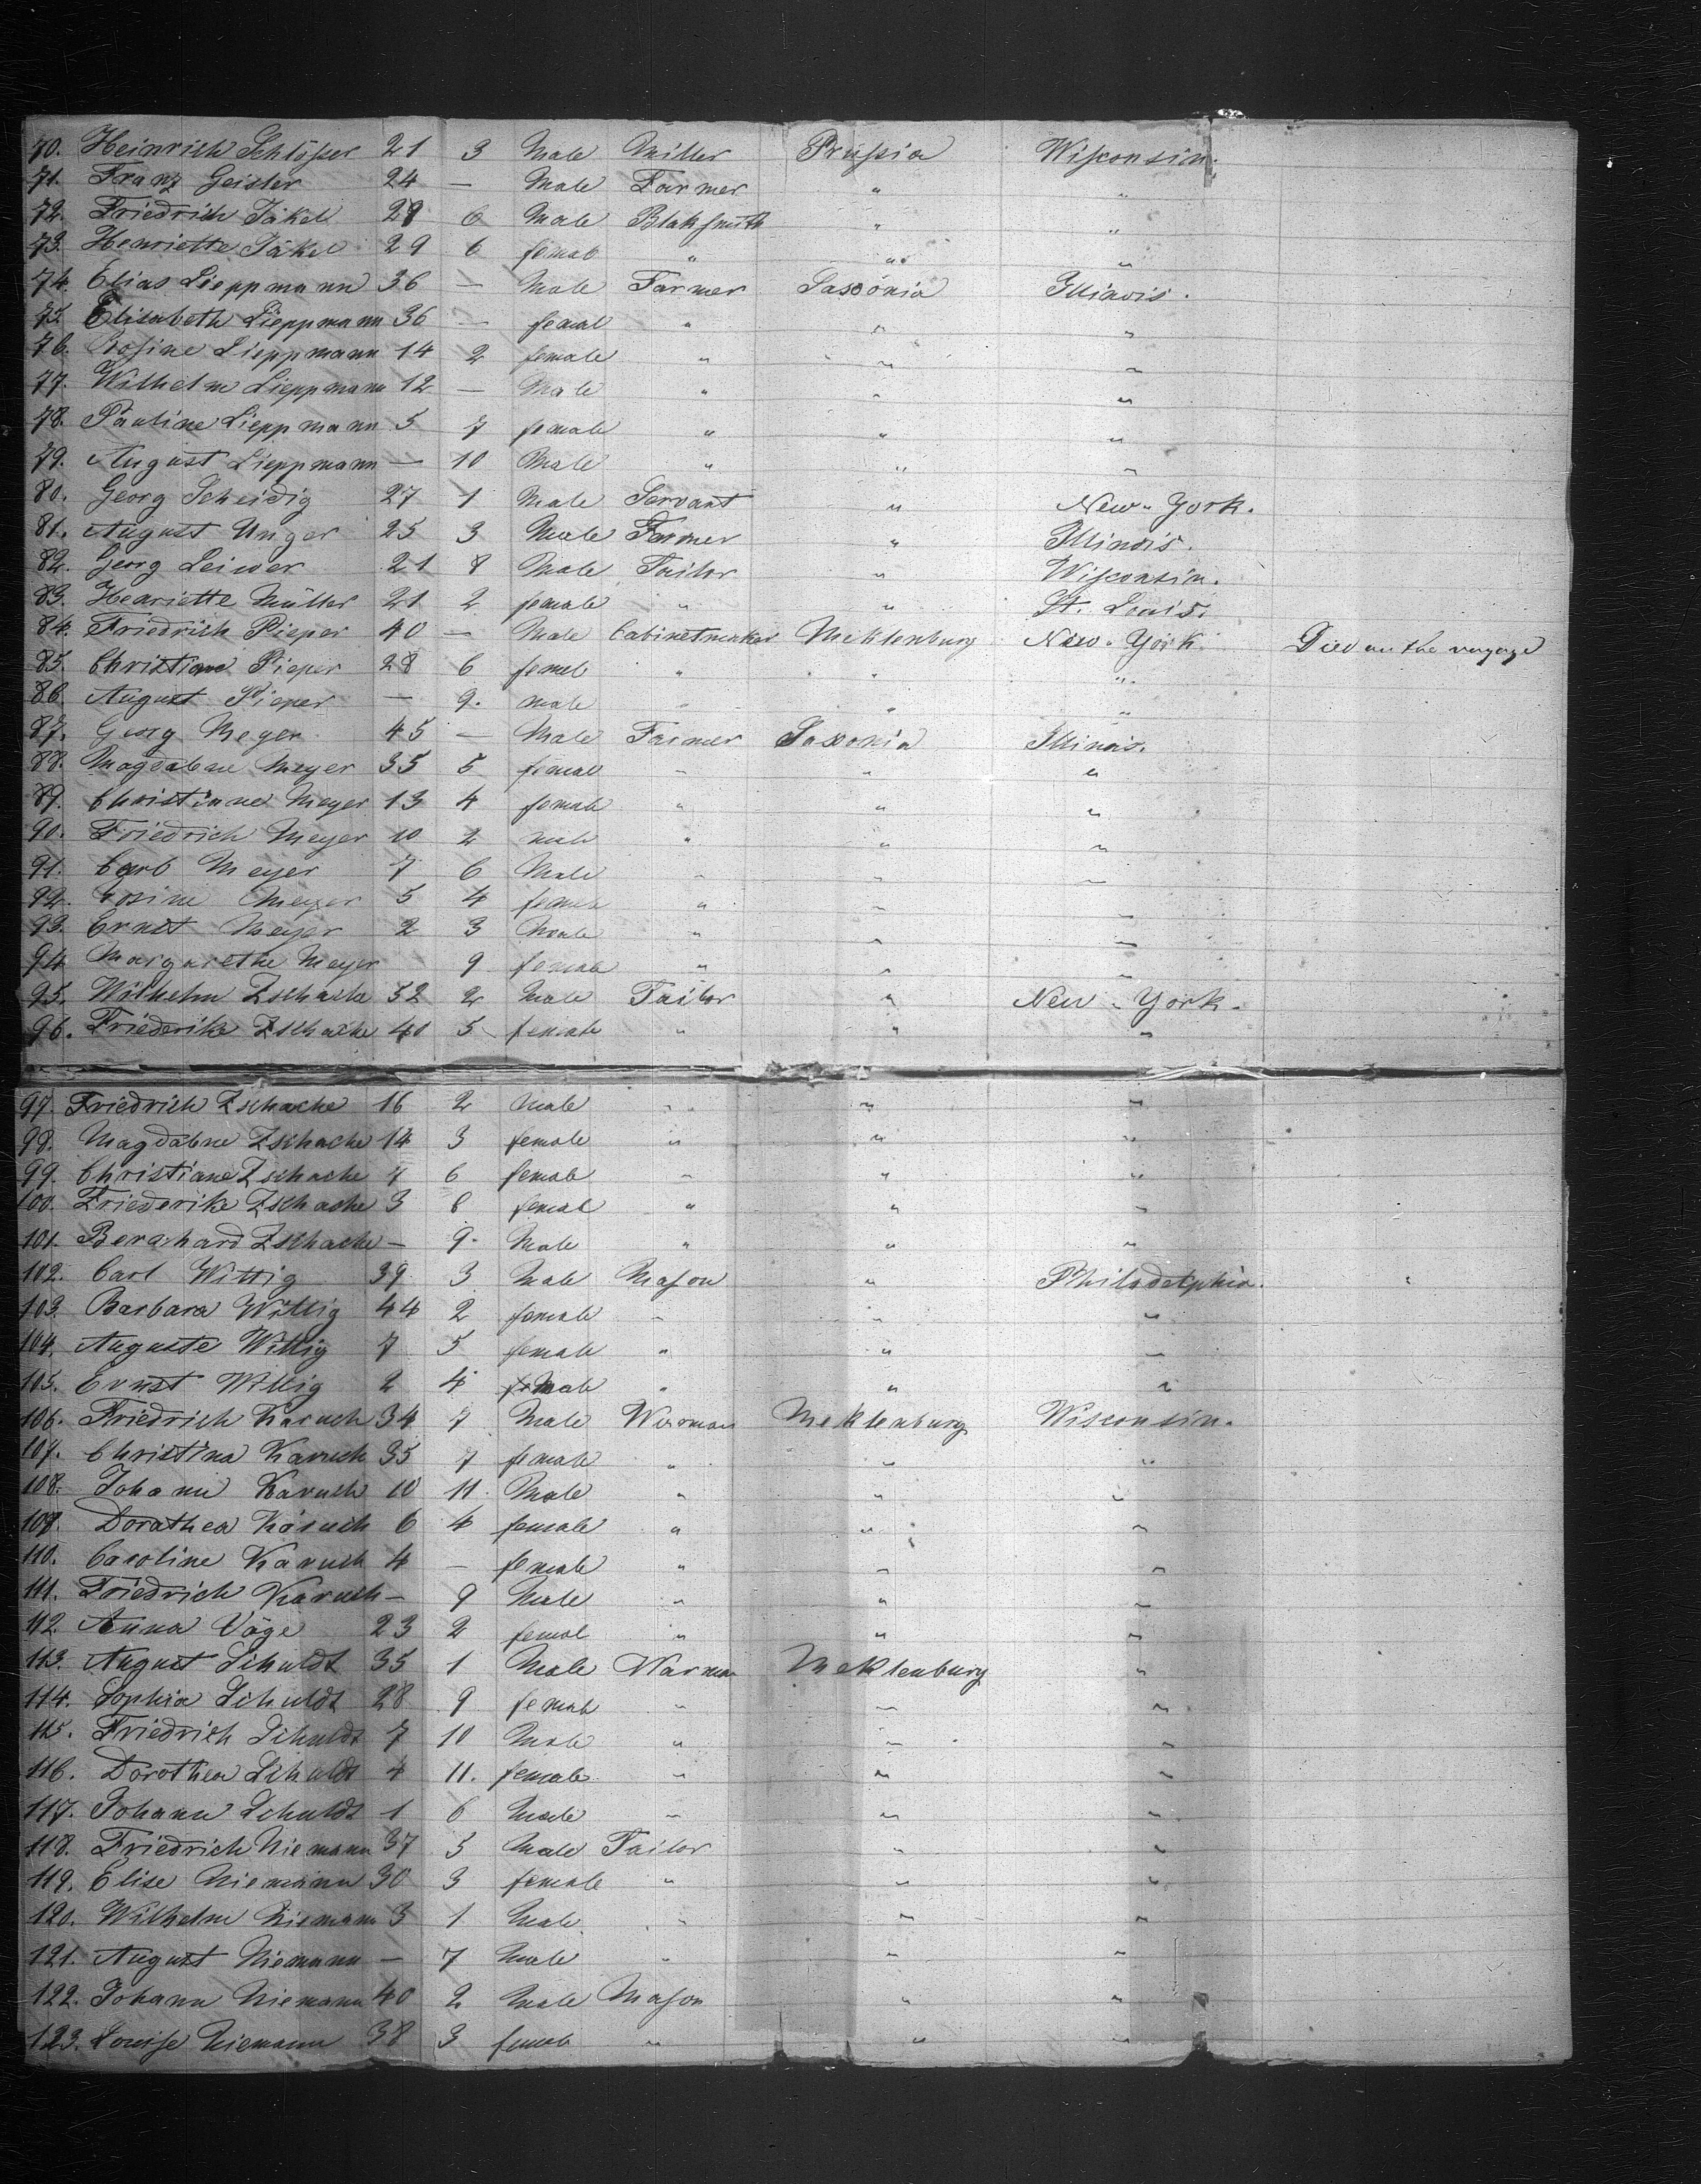 70. Heinrich Schlößer 21 3 Male Miller Prussia Wisconsin.
71. Franz Geisler 24 — Male Farmer " "
72. Friedrich Jäkel 29 6 Male Blaksmith " "
73. Henriette Jäkel 29 6 female " " "
74. Elias Lieppmann 36 — Male Farmer Saxonia Illinois.
75. Elisabeth Lieppmann 36 — femal " " "
76. Rosine Lieppmann 14 2 female " " "
77. Wilhelm Lieppmann 12 — Male " " "
78. Pauline Lieppmann 5 7 female " " "
79. August Lieppmann — 10 Male " " "
80. Georg Scheidig 27 1 Male Servant " New-York.
81. August Unger 25 3 Male Farmer " Illinois.
82. Georg Leiwer 21 8 Male Tailor " Wisconsin.
83. Henriette Müller 21 2 female " " St. Louis.
84. Friedrich Pieper 40 — Male Cabinetmaker Meklenburg New-York Died on the voyage
85. Christiane Pieper 28 6 femel " " "
86. August Pieper — 9. male " " "
87. Georg Meyer 45 — Male Farmer Saxonia Illinois.
88. Magdalene Meyer 35 5 femal " " "
89. Christiane Meyer 13 4 female " " "
90. Friedrich Meyer 10 2 male " " "
91. Carl Meyer 7 6 Male " " "
92. Rosine Meyer 5 4 female " " "
93. Ernst Meyer 2 3 Male " " "
94 Margarethe Meyer 9 female " " "
95. Wilhelm Zschache 52 2 Male Tailor " New-York.
96. Friederike Zschache 40 5 female " " "
97. Friedrich Zschache 16 2 Male " " "
98. Magdalene Zschache 14 3 female " " "
99. Christiane Zschache 7 6 female " " "
100. Friederike Zschache 3 8 femal " " "
101. Bernhard Zschache — 9. Male " " "
102. Carl Wittig 39 3 Male Mason " Philadelphia.
103. Barbara Wittig 44 2 female " " "
104. Auguste Wittig 7 5 female " " "
105. Ernst Wittig 2 4 Male " " "
106. Friedrich Karuch 34 7 Male Meklenburg Wisconsin.
107. Christina Karuch 35 7 female " " "
108. Johann Karuch 10 11. Male " " "
109. Dorathea Karuch 6 4 female " " "
110. Caroline Karuch 4 — female " " "
111. Friedrich Karuch — 9 Male " " "
112. Anna Väge 23 2 femal " " "
113. August Schuldt 35 1 Male Meklenburg "
114. Sophia Schuldt 28 9 female " " "
115. Friedrich Schuldt 7 10 Male " " "
116. Dorothea Schuldt 4 11. female " " "
117. Johann Schuldt 1 6 Male " " "
118. Friedrich Niemann 37 5 Male Tailor " "
119. Elise Niemann 30 3 female " " "
120. Wilhelm Niemann 3 1 Male " " "
121. August Niemann — 7 Male " " "
122. Johann Niemann 40 2 Male Mason " "
123. Louise Niemann 38 3 female " " "